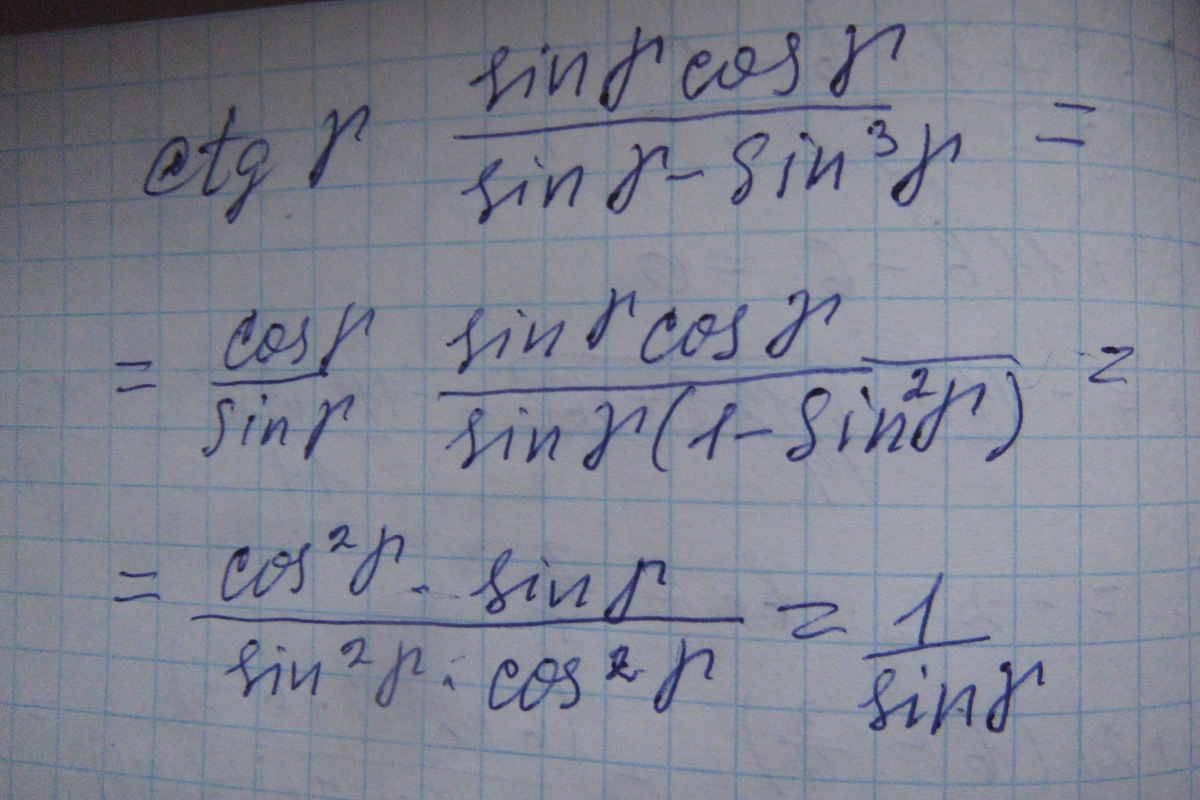 ctg γ (sin γ cos γ)/(sin γ - sin³γ) =
= (cos γ)/(sin γ) (sin γ cos γ)/(sin γ (1 - sin²γ)) =
= (cos²γ · sin γ)/(sin²γ · cos²γ) = 1/(sin γ)